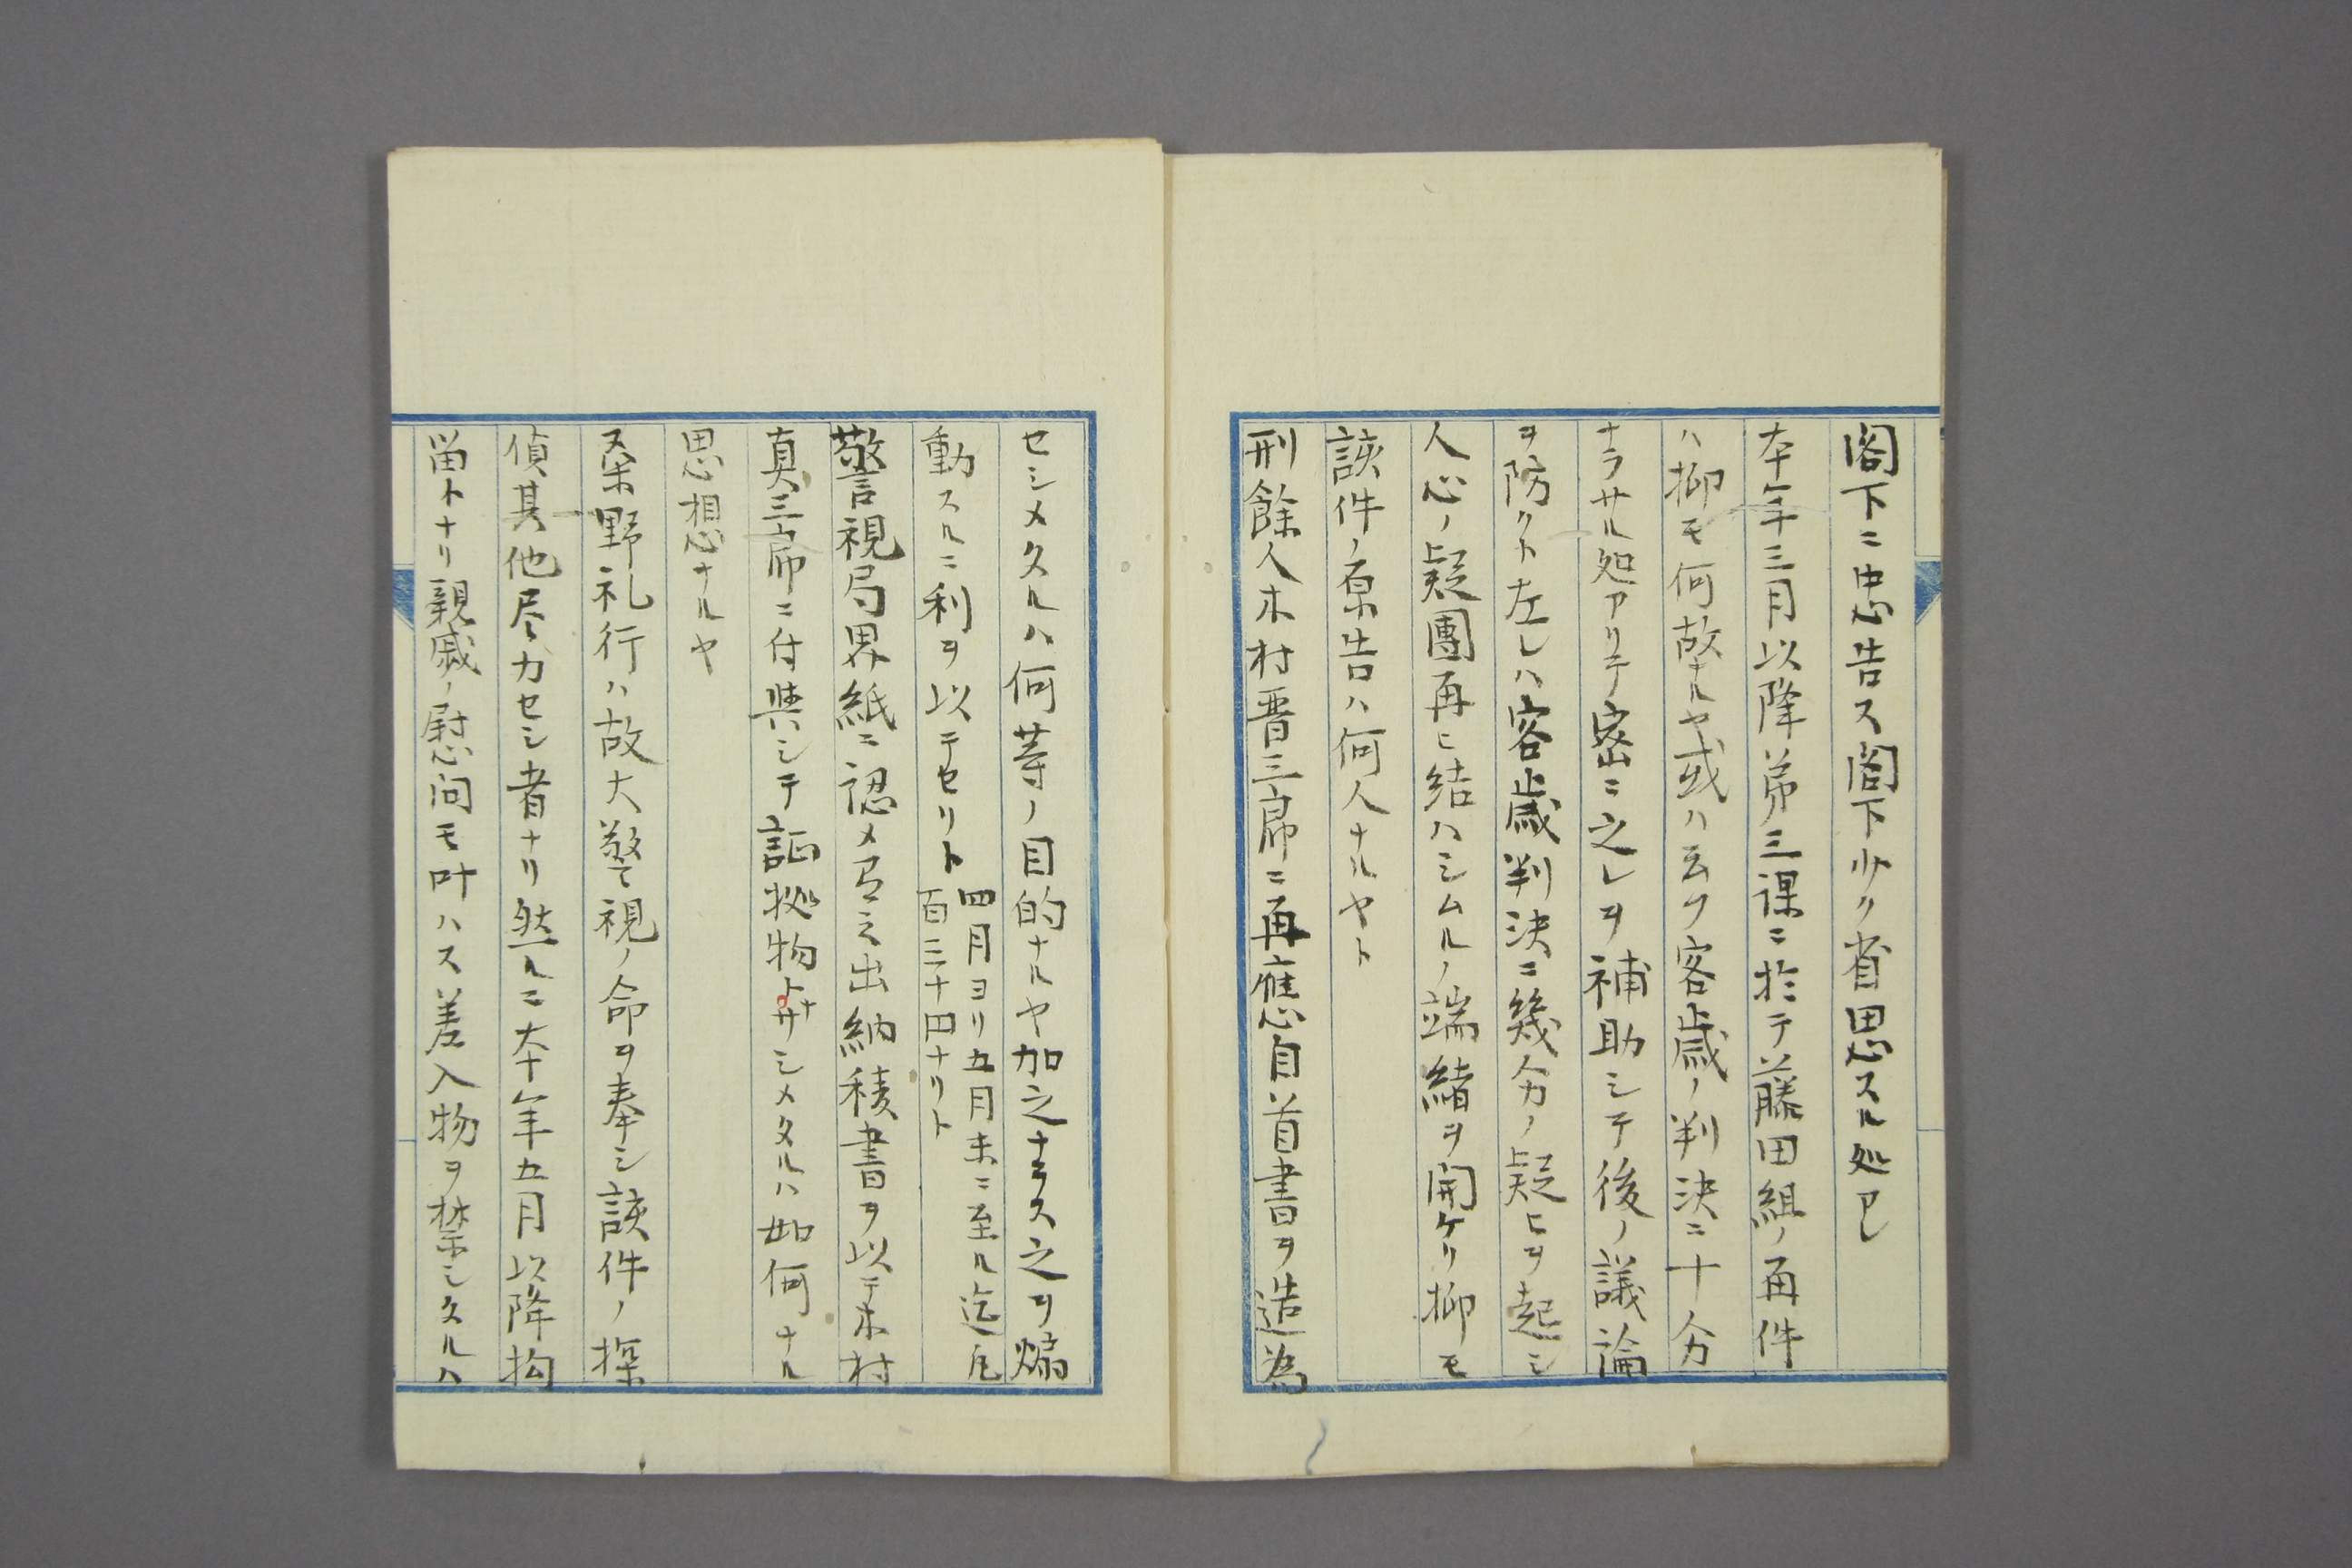 閣下ニ忠告ス閣下少ク省思スル処アレ
本年三月以降第三課ニ於テ藤田組ノ再件
ハ抑モ何故ナルヤ或ハ云フ客歳ノ判決ニ十分
ナラサル処アリテ密ニ之レヲ補助シテ後ノ議論
ヲ防クト左レハ客歳判決ニ幾分ノ疑ヒヲ起シ
人心ノ疑團再ヒ結ハシムルノ端緒ヲ開ケリ抑モ
該件ノ原告ハ何人ナルヤト
刑餘人木村晋三郎ニ再應自首書ヲ造為
セシメタルハ何等ノ目的ナルヤ加之ナラス之ヲ煽
動スルニ利ヲ以テセリト四月ヨリ五月末ニ至ル迄凡
百三十円ナリト
警視局界紙ニ認メ有之出納積書ヲ以テ木村
真三郎ニ付與シテ証拠物トナサシメタルハ如何ナル
思想ナルヤ
桑野礼行ハ故大警視ノ命ヲ奉シ該件ノ探
偵其他尽力セシ者ナリ然ルニ本年五月以降拘
留トナリ親戚ノ慰问モ叶ハス差入物ヲ禁シタルハ